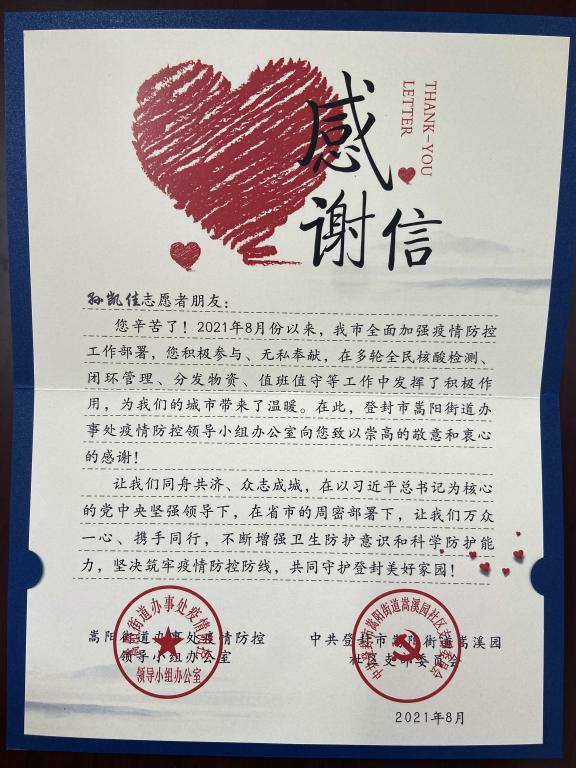 感谢信
THANK-YOU
LETTER
孙凯佳志愿者朋友：
您辛苦了！2021年8月份以来，我市全面加强疫情防控
工作部署，您积极参与、无私奉献，在多轮全民核酸检测、
闭环管理、分发物资、值班值守等工作中发挥了积极作
用，为我们的城市带来了温暖。在此，登封市嵩阳街道办
事处疫情防控领导小组办公室向您致以崇高的敬意和衷心
的感谢！
让我们同舟共济、众志成城，在以习近平总书记为核心
的党中央坚强领导下，在省市的周密部署下，让我们万众
一心、携手同行，不断增强卫生防护意识和科学防护能
力，坚决筑牢疫情防控防线，共同守护登封美好家园！
嵩阳街道办事处疫情防控
领导小组办公室
嵩阳街道办事处疫情防控
领导小组办公室
中共登封市嵩阳街道嵩溪园
社区支部委员会
中共登封市嵩阳街道嵩溪园社区支部委员会
2021年8月